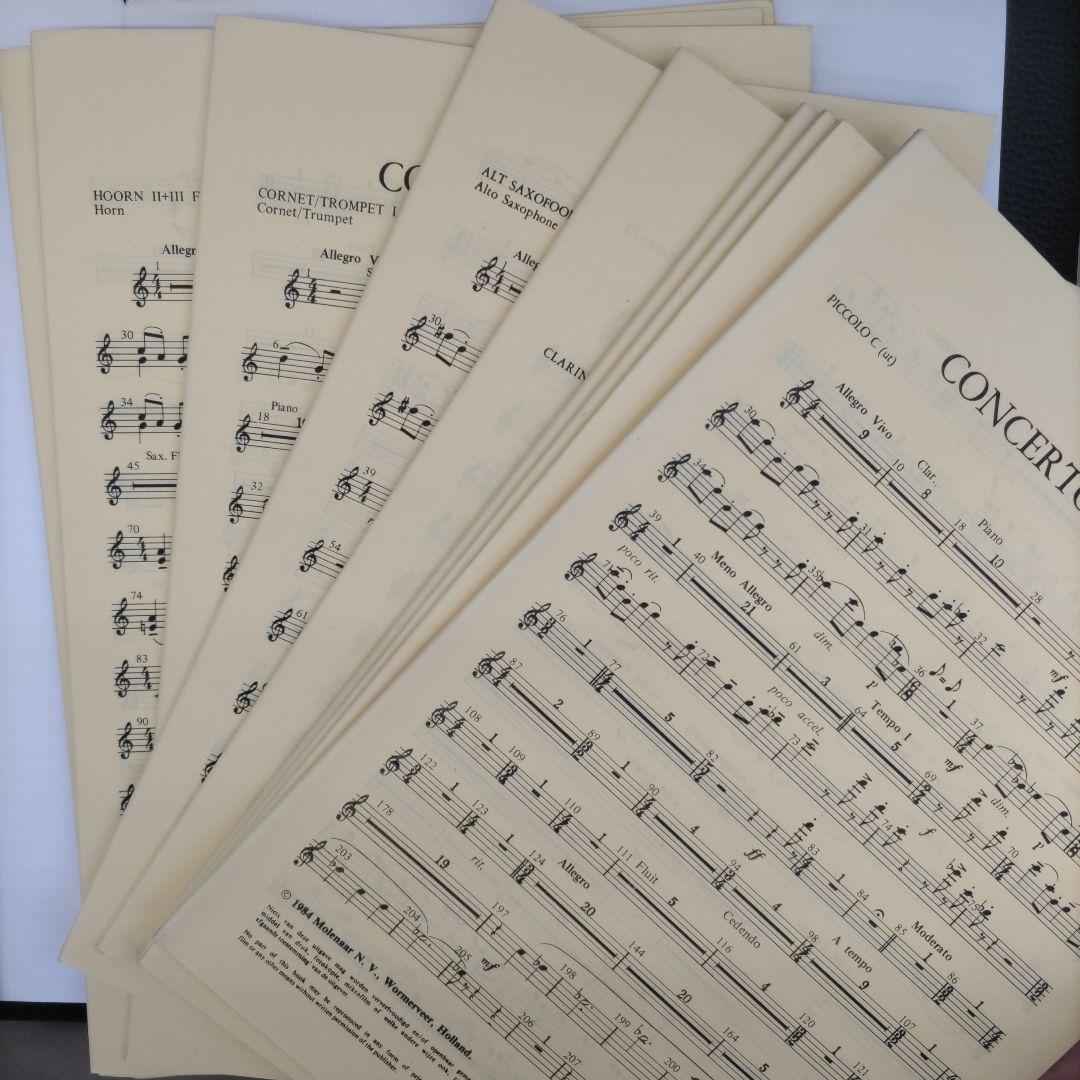 HOORN II+III F
Horn
Allegr
1
30
34
Sax. Fl
45
70
74
83
90
CO
CORNET/TROMPET I
Cornet/Trumpet
Allegro V
1
6
Piano
18
32
ALT SAXOFOON
Alto Saxophone
Alleg
30
39
54
61
CLARIN
PICCOLO C (ut)
CONCERTO
Allegro Vivo
9
10
Clar.
8
18
Piano
10
28
30
31
32
mf
34
35
dim.
p
36
37
mf
dim.
p
39
poco rit.
1
40
Meno Allegro
21
61
3
64
Tempo I
5
69
70
71
72
poco accel.
73
74
f
75
76
1
77
5
82
ff
83
1
84
85
Moderato
1
86
1
87
2
89
1
90
4
94
4
98
A tempo
9
107
108
1
109
1
110
1
111
Fluit
5
116
Cedendo
4
120
1
121
122
1
123
rit.
1
124
Allegro
20
144
20
164
5
178
19
197
mf
198
199
200
203
204
205
206
207
© 1984 Molenaar N. V., Wormerveer, Holland.
Niets van deze uitgave mag worden verveelvoudigd en/of openbaar
middel van druk, fotokopie, mikrofilm of welke andere wijze ook,
afgaande toestemming van de uitgever
No part of this book may be reproduced in any form, of
film or any other means without written permission of the publisher.